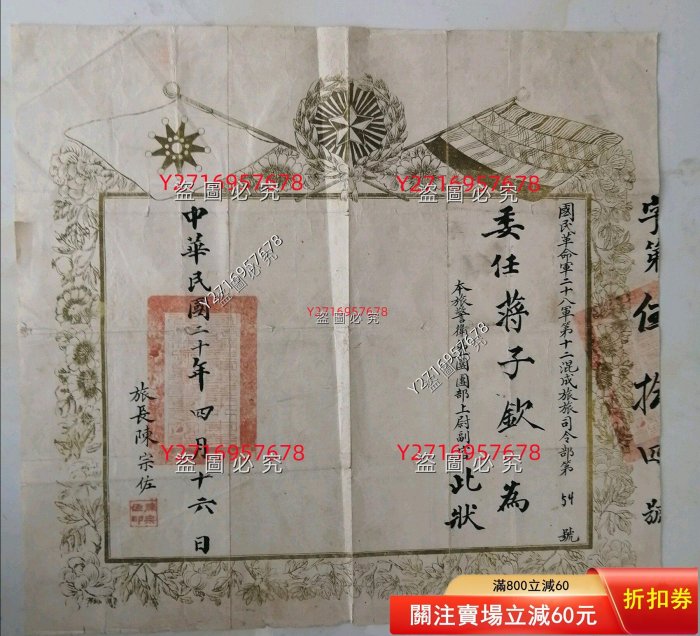 字第伍拾四號
國民革命軍二十八軍第十二混成旅旅司令部第54號
委任蔣子欽為
本旅警衛團團部上尉副官此狀
中華民國二十年四月十六日
旅長陳宗佐
Y2716957678
盜圖必究
Y2716957678
盜圖必究
Y2716957678
盜圖必究
Y2716957678
盜圖必究
Y2716957678
盜圖必究
Y2716957678
盜圖必究
Y2716957678
盜圖必究
滿800立減60
關注賣場立減60元
折扣券